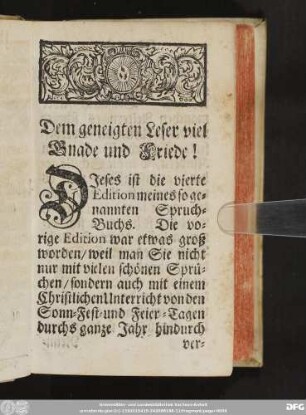 Dem geneigten Leser viel
Gnade und Friede!
DIeses ist die vierte
Edition meines soge-
nannten Spruch-
Buchs. Die vo-
rige Edition war etwas groß
worden/ weil man Sie nicht
nur mit vielen schönen Sprü-
chen/ sondern auch mit einem
Christlichen Unterricht von den
Sonn-Fest- und Feier-Tagen
durchs ganze Jahr hindurch
ver-